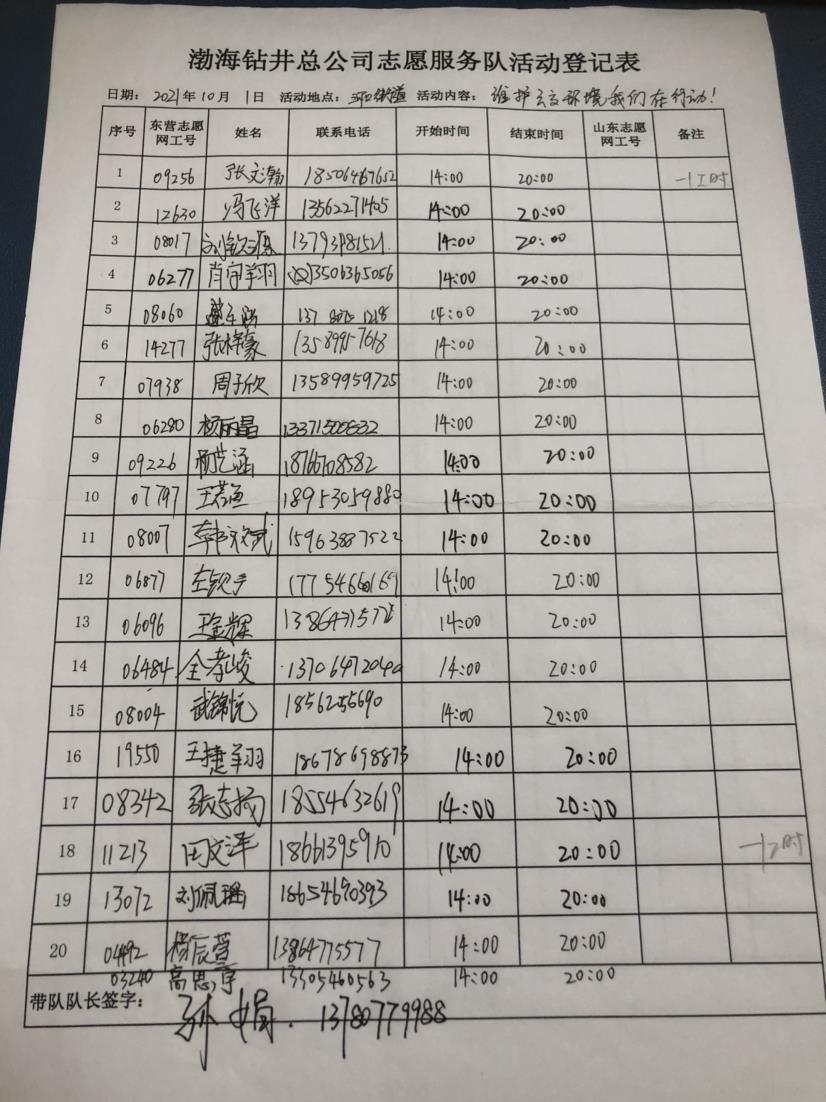 渤海钻井总公司志愿服务队活动登记表
日期： 2021年10月 1日 活动地点： 活动内容： 维护 环境我们在行动！
序号 东营志愿网工号 姓名 联系电话 开始时间 结束时间 山东志愿网工号 备注
1 09256 张文瀚 18506467652 14:00 20:00 一1时
2 12630 冯飞洋 13562271405 14:00 20:00
3 08017 14:00 20:00
4 06277 肖宇羽 13506365056 14:00 20:00
5 08060 14:00 20:00
6 14277 张梓豪 14:00 20:00
7 07938 周子欣 13589959725 14:00 20:00
8 06280 杨雨晶 14:00 20:00
9 09226 杨艺涵 18766708582 14:00 20:00
10 07797 18953059880 14:00 20:00
11 08007 15963887522 14:00 20:00
12 06877 14:00 20:00
13 06096 14:00 20:00
14 06484 全孝峻 13706472040 14:00 20:00
15 08004 武锦悦 14:00 20:00
16 19550 王捷羽 18678698873 14:00 20:00
17 08342 张志扬 18554632619 14:00 20:00
18 11213 田文泽 18661395910 14:00 20:00
19 13072 刘佩瑶 18654690393 14:00 20:00
20 04492 杨辰萱 13864775577 14:00 20:00
03240 高思宇 13305460563 14:00 20:00
带队队长签字： 孙娟. 13780779988